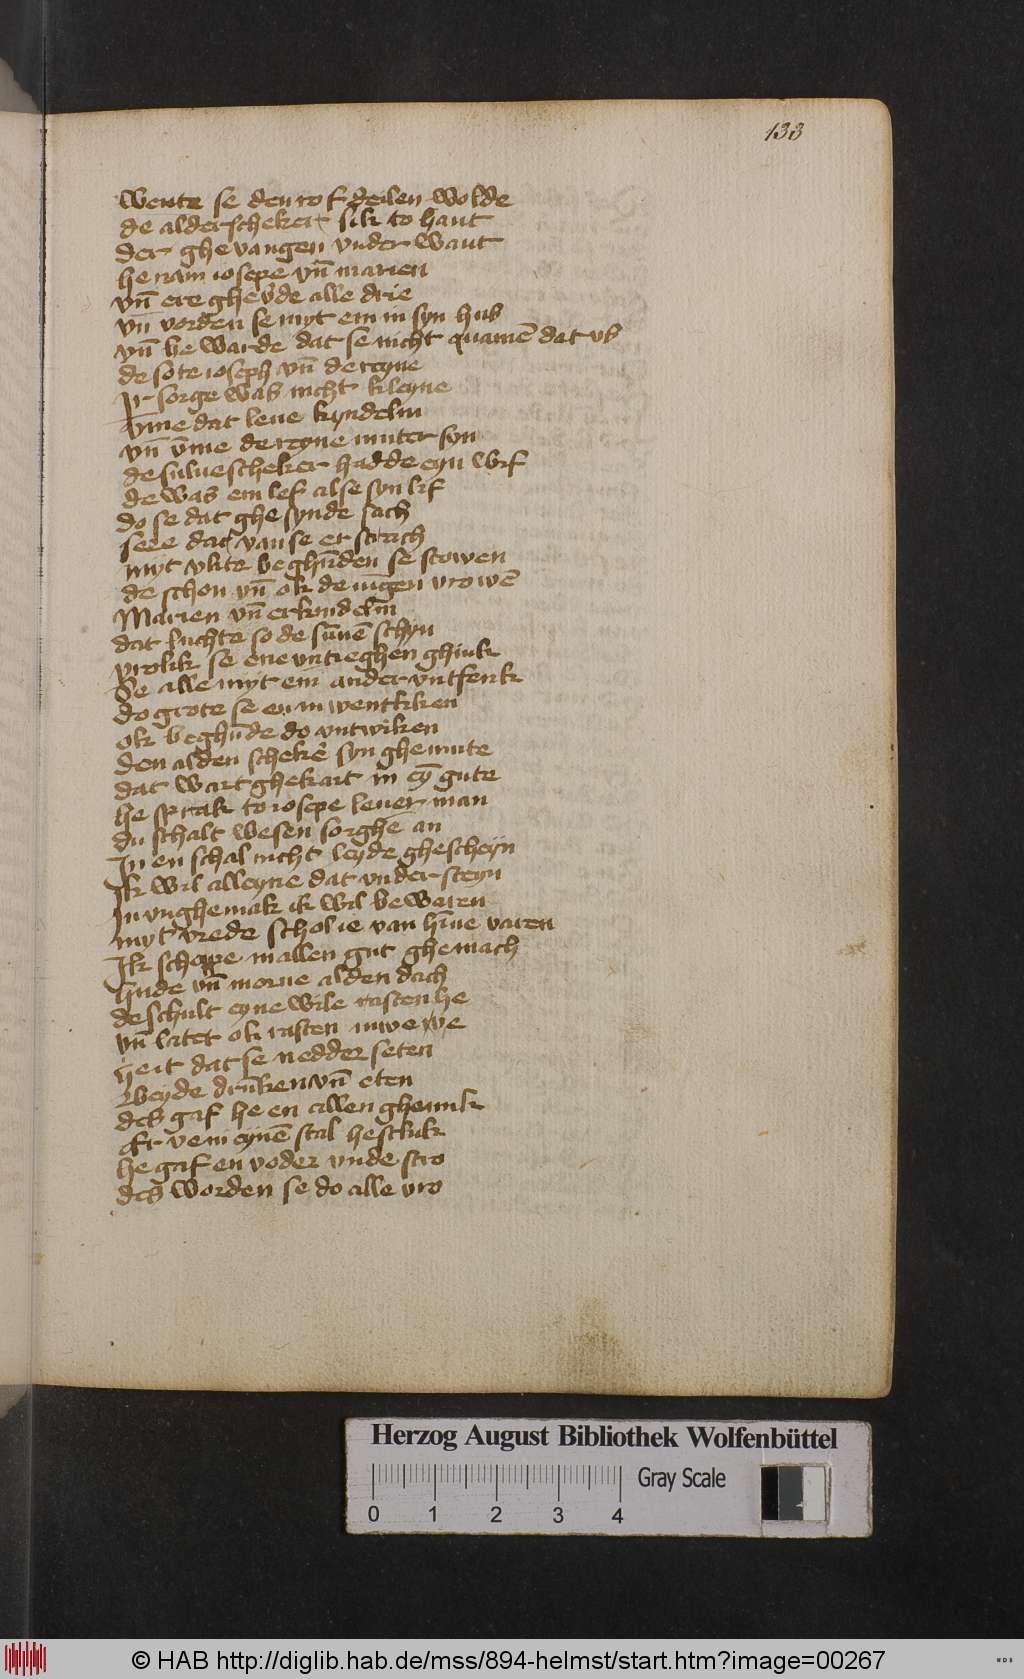 133
wente se den rof deilen wolde
de alder scheker sik to hant
der ghevangen vnder want
he nam iosepe vn̄ marien
vn̄ ere gheṽde alle drie
vn̄ vorden se myt em in syn hus
vn̄ he warde dat se nicht quamē dar vs
de sote ioseph vn̄ de reyne
Ir sorge was nicht kleyne
v̄me dat leue kyndelin
vn̄ v̄me de reyne muter syn
de sulue scheker hadde eyn wif
de was em lef alse syn lif
do se dat ghesynde sach
seee dar van se er scrach
myt vlite beghūden se scowen
de schon vn̄ ok de iūgen vrowē
Marien vn̄ er kindelin
dat luchte so de sūnē schyn
vrolik se ene vntieghen ghink
Se alle myt ein ander vntfenk
do grote se en in wentkken
ok beghūde do vntwiken
den alden schekē syn ghemute
dat wart ghekart in eȳ gute
he sprak to iosepe leuer man
du schalt wesen sorghe an
In en schal nicht leyde ghescheyn
Ik wil alleyne dat vnder steyn
In vnghemak ik wil bewaren
myt vrede schol ie van hīne varen
Ik schope in allen gut ghemach
hūde vn̄ morne alden dach
de schult eyne wile rasten he
vn̄ latet ok rasten iuwe ve
heit dat se nedder seten
Beyde drūken vn̄ eten
des gaf he en allen ghenuk
Er ve in eynē stal he stuk
he gaf en voder vnde stro
des worden se do alle vro
Herzog August Bibliothek Wolfenbüttel
Gray Scale
0 1 2 3 4
© HAB http://diglib.hab.de/mss/894-helmst/start.htm?image=00267